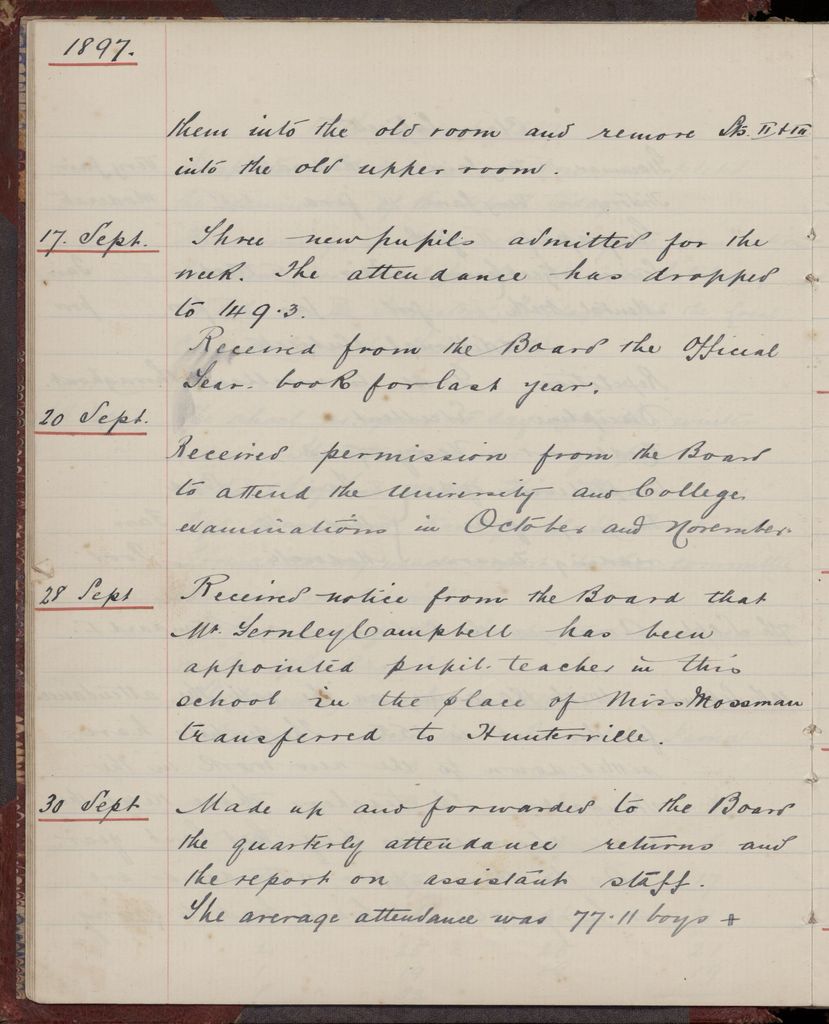 1897.
them into the old room and remove Sts. II & III
into the old upper room.
17. Sept. Three new pupils admitted for the
week. The attendance has dropped
to 149.3.
Received from the Board the Official
Year-book for last year.
20 Sept.
Received permission from the Board
to attend the University and College
examinations in October and November.
28 Sept Received notice from the Board that
Mr. Fernley Campbell has been
appointed pupil-teacher in this
school in the place of Miss Mossman
transferred to Hunterville.
30 Sept Made up and forwarded to the Board
the quarterly attendance returns and
the report on assistant staff.
The average attendance was 77.11 boys +